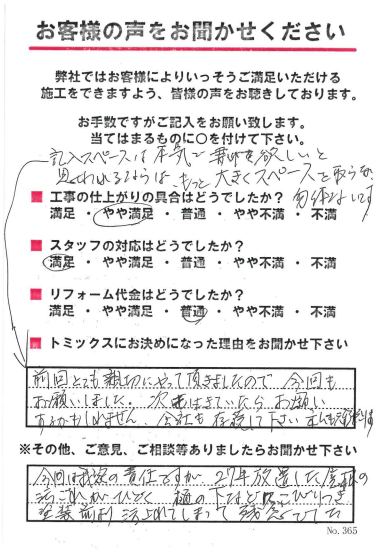 お客様の声をお聞かせください
弊社ではお客様によりいっそうご満足いただける
施工をできますよう、皆様の声をお聴きしております。
お手数ですがご記入をお願い致します。
当てはまるものに○を付けて下さい。
記入スペースは本気で 欲しいと
思われるならば、もっと大きくスペースを取らな
勿体ないです
■ 工事の仕上がりの具合はどうでしたか?
満足 ・ やや満足 ・ 普通 ・ やや不満 ・ 不満
■ スタッフの対応はどうでしたか?
満足 ・ やや満足 ・ 普通 ・ やや不満 ・ 不満
■ リフォーム代金はどうでしたか?
満足 ・ やや満足 ・ 普通 ・ やや不満 ・ 不満
■ トミックスにお決めになった理由をお聞かせ下さい
前回とても親切にやって頂きましたので 今回も
お願いしました。次 生きていたらお願い
するかもしれません。会社も存続して下さい
※その他、ご意見、ご相談等ありましたらお聞かせ下さい
今回は我家の責任ですが 27年放置した屋根の
汚ごれがひどく 樋の下など こびりつき
塗装 汚れてしまって残念でした
No. 365